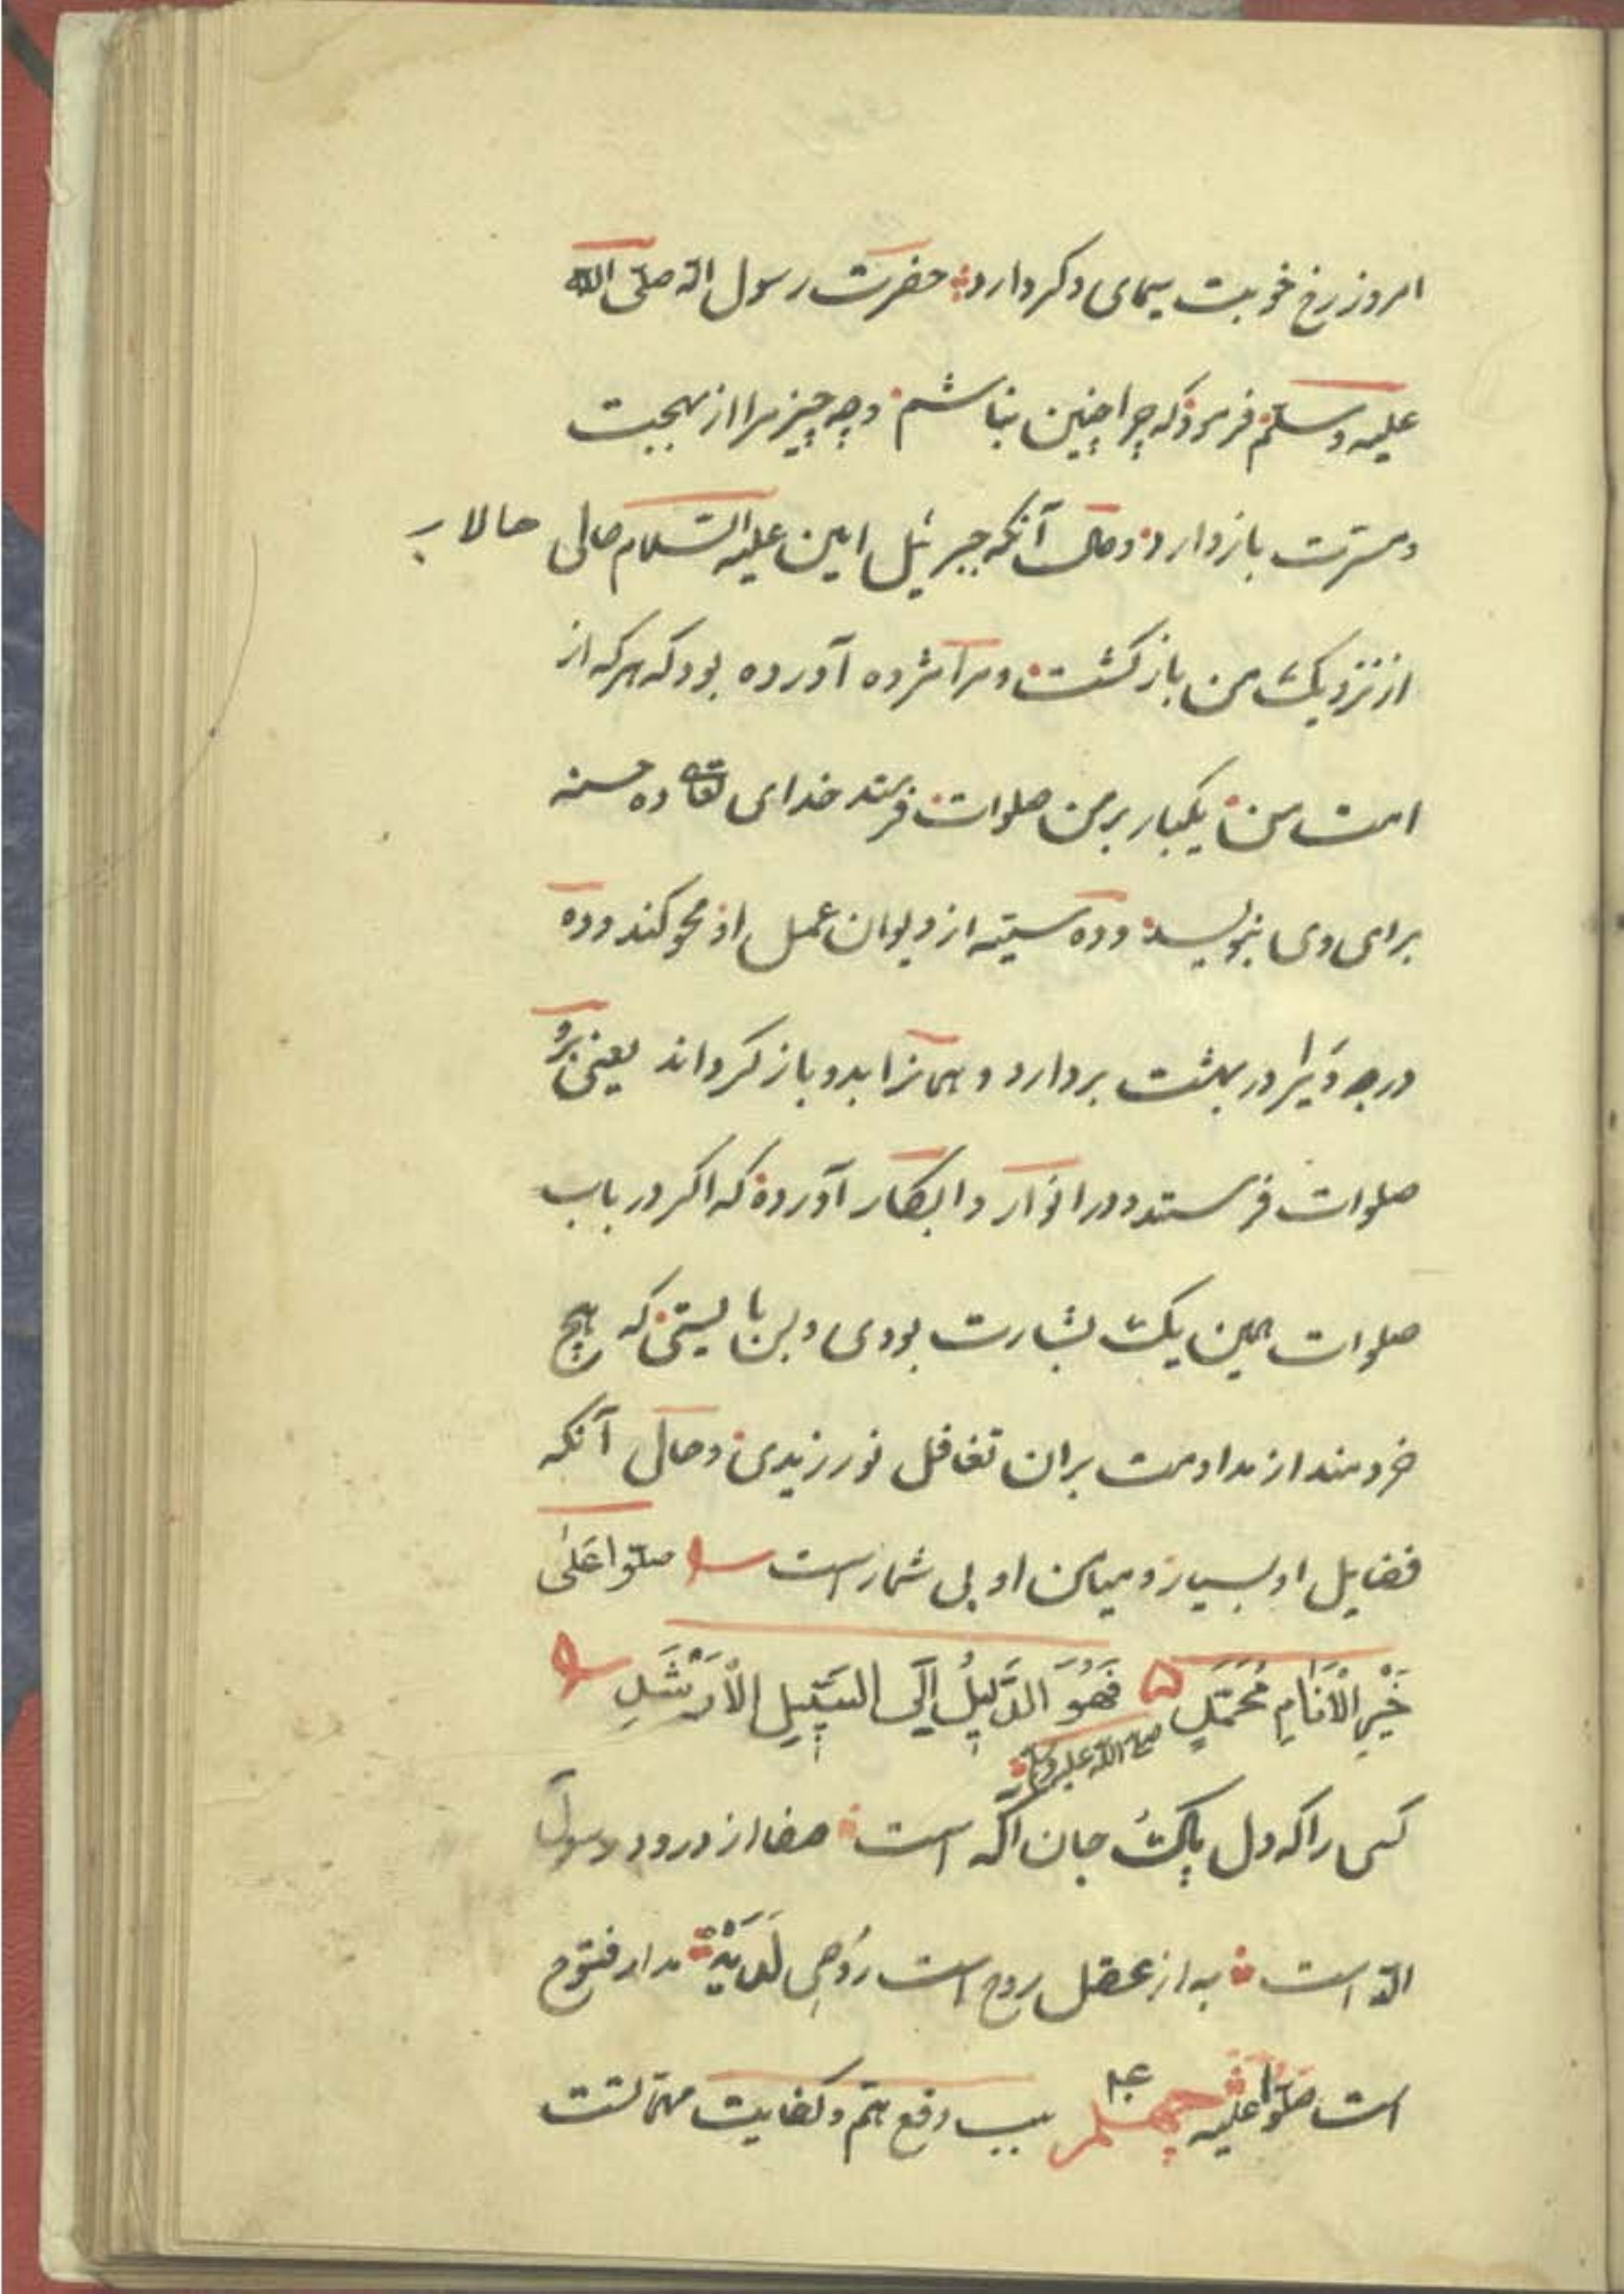 امروز رخ خوبت سیمای دکر دارد حضرت رسول الله صلی الله
علیه وسلم فرمود که چرا چنین نباشم و چه چیز مرا از بهجت
ومسرت باز دارد و حال آنکه جبرئیل امین علیه السلام حالی حالا
از نزدیک من باز کشت و مرا مژده آورده بود که هر که از
امت من یکبار بر من صلوات فرستد خدای تعالی ده حسنه
برای وی بنویسد و ده سیئه از دیوان عمل او محو کند و ده
درجه ویرا در بهشت بردارد و همانرا بدو باز کرداند یعنی برو
صلوات فرستد و در انوار و ابکار آورده که اکر در باب
صلوات همین یک بشارت بودی و بس بایستی که هیچ
خردمند از مداومت بران تغافل نورزیدی و حال آنکه
فضایل او بسیار و میامن او بی شمار است صلوا علی
خَیْرِ الْاَنَامِ مُحَمَّدٍ فَهُوَ الدَّلِیلُ اِلَی السَّبِیلِ الْاَرْشَدِ
صلی الله علیه وسلم
کسی را که دل پاک جان آکه است صفا از درود رسول
الله است به از عقل روح است رُوحِی لَدَیْهِ مدار فتوح
است صلوا علیه چهلم ۴۰ سبب رفع هم و کفایت مهماتست